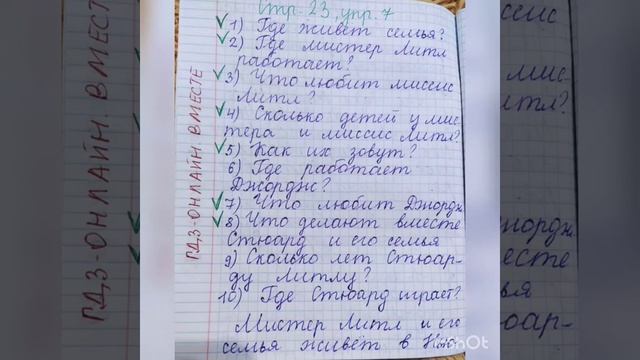 Стр. 23, упр. 7
1) Где живет семья?
2) Где мистер Литл
работает?
3) Что любит миссис
Литл?
4) Сколько детей у мис
тера и миссис Литл?
5) Как их зовут?
6) Где работает
Джордж?
7) Что любит Джордж
8) Что делают вместе
Стюард и его семья
9) Сколько лет Стюар-
ду Литлу?
10) Где Стюард играет?
Мистер Литл и его
семья живет в
ГДЗ-ОНЛАЙН. ВМЕСТЕ